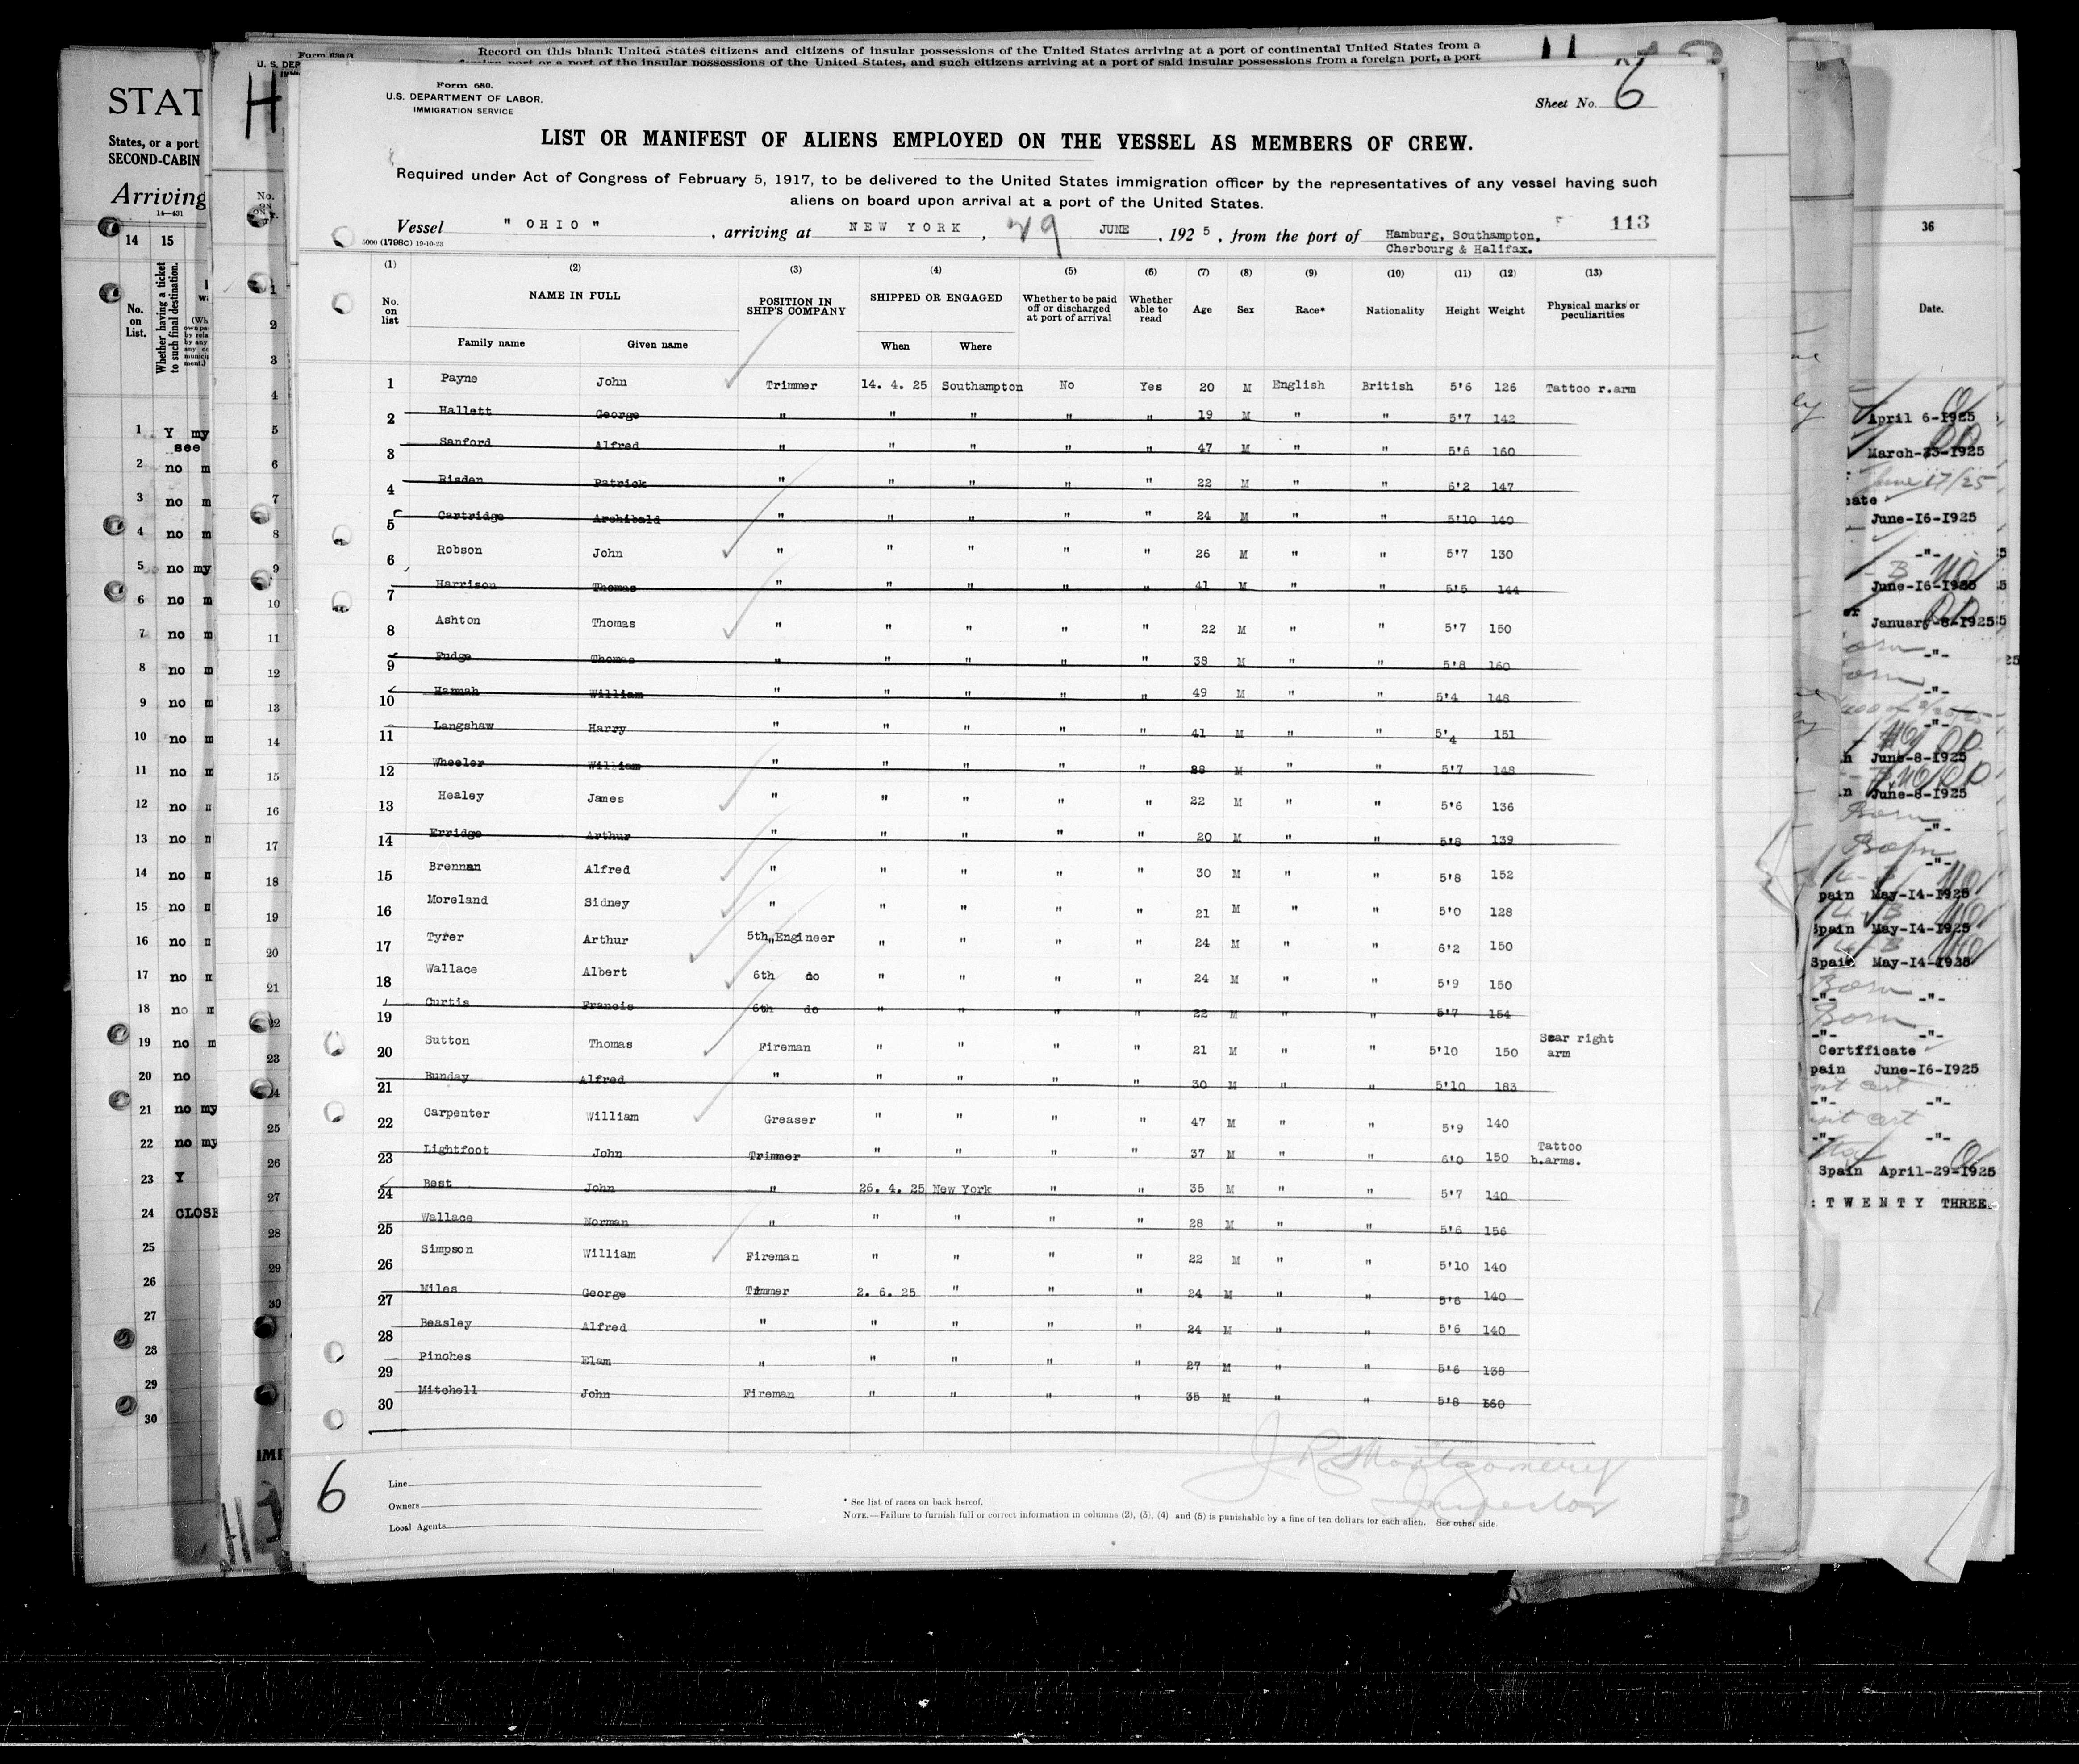 Record on this blank United States citizens and citizens of insular possessions of the United States arriving at a port of continental United States from a
foreign port or a port of the insular possessions of the United States, and such citizens arriving at a port of said insular possessions from a foreign port, a port
Form 680.
U.S. DEPARTMENT OF LABOR.
IMMIGRATION SERVICE
Sheet No. 6
LIST OR MANIFEST OF ALIENS EMPLOYED ON THE VESSEL AS MEMBERS OF CREW.
Required under Act of Congress of February 5, 1917, to be delivered to the United States immigration officer by the representatives of any vessel having such
aliens on board upon arrival at a port of the United States.
113
Vessel " OHIO " , arriving at NEW YORK , 29 JUNE , 192 5 , from the port of Hamburg, Southampton,
Cherbourg & Halifax.
5000 (1798C) 19-10-23
(1) (2) (3) (4) (5) (6) (7) (8) (9) (10) (11) (12) (13)
No. on list NAME IN FULL Family name Given name POSITION IN SHIP'S COMPANY SHIPPED OR ENGAGED When Where Whether to be paid off or discharged at port of arrival Whether able to read Age Sex Race* Nationality Height Weight Physical marks or peculiarities
1 Payne John Trimmer 14. 4. 25 Southampton No Yes 20 M English British 5'6 126 Tattoo r.arm
2 Hallett George " " " " " 19 M " " 5'7 142
3 Sanford Alfred " " " " " 47 M " " 5'6 160
4 Risden Patrick " " " " " 22 M " " 6'2 147
5 Cartridge Archibald " " " " " 24 M " " 5'10 140
6 Robson John " " " " " 26 M " " 5'7 130
7 Harrison Thomas " " " " " 41 M " " 5'5 144
8 Ashton Thomas " " " " " 22 M " " 5'7 150
9 Fudge Thomas " " " " " 38 M " " 5'8 160
10 Hannah William " " " " " 49 M " " 5'4 148
11 Langshaw Harry " " " " " 41 M " " 5'4 151
12 Wheeler William " " " " " 28 M " " 5'7 148
13 Healey James " " " " " 22 M " " 5'6 136
14 Erridge Arthur " " " " " 20 M " " 5'8 139
15 Brennan Alfred " " " " " 30 M " " 5'8 152
16 Moreland Sidney " " " " " 21 M " " 5'0 128
17 Tyrer Arthur 5th Engineer " " " " 24 M " " 6'2 150
18 Wallace Albert 6th do " " " " 24 M " " 5'9 150
19 Curtis Francis 6th do " " " " 22 M " " 5'7 154
20 Sutton Thomas Fireman " " " " 21 M " " 5'10 150 Scar right arm
21 Bunday Alfred " " " " " 30 M " " 5'10 183
22 Carpenter William Greaser " " " " 47 M " " 5'9 140
23 Lightfoot John Trimmer " " " " 37 M " " 6'0 150 Tattoo b.arms.
24 Best John " 26. 4. 25 New York " " 35 M " " 5'7 140
25 Wallace Norman " " " " " 28 M " " 5'6 156
26 Simpson William Fireman " " " " 22 M " " 5'10 140
27 Miles George Trimmer 2. 6. 25 " " " 24 M " " 5'6 140
28 Beasley Alfred " " " " " 24 M " " 5'6 140
29 Pinches Elam " " " " " 27 M " " 5'6 138
30 Mitchell John Fireman " " " " 35 M " " 5'8 160
J R Montgomery
Inspector
6
Line
Owners
Local Agents
* See list of races on back hereof.
NOTE.—Failure to furnish full or correct information in columns (2), (3), (4) and (5) is punishable by a fine of ten dollars for each alien. See other side.
STAT
States, or a port
SECOND-CABIN
Arriving
14—431
14 15
No. on List.
Whether having a ticket to such final destination.
1 Y my
see
2 no m
3 no m
4 no m
5 no my
6 no m
7 no m
8 no m
9 no m
10 no m
11 no
12 no
13 no
14 no
15 no
16 no
17 no
18 no
19 no m
20 no
21 no my
22 no my
23 Y
24 CLOSE
25
26
27
28
29
30
36
Date.
April 6-1925
March-23-1925
June 17/25
June-16-1925
-"-
June-16-1925
January-8-1925
-"-
-"-
-"-
June-8-1925
June-8-1925
Born
-"-
Born
-"-
pain May-14-1925
Spain May-14-1925
Spain May-14-1925
Born
-"- -"-
Born
-"- -"-
Certificate
pain June-16-1925
-"- -"-
-"- -"-
Spain April-29-1925
: TWENTY THREE.